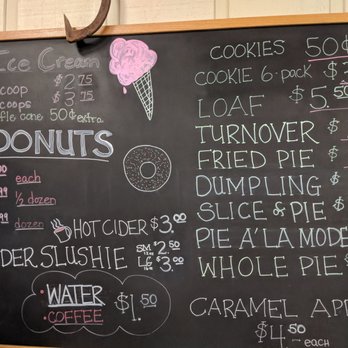 Ice Cream
coop $2.75
coops $3.75
ffle cone 50¢ extra
DONUTS
each
½ dozen
dozen
HOT CIDER $3.00
DER SLUSHIE SM 12 oz $2.50
LG 16 oz $3.00
• WATER
• COFFEE
$1.50
COOKIES 50¢
COOKIE 6-pack $3
LOAF $5.50
TURNOVER $
FRIED PIE $
DUMPLING $
SLICE of PIE $
PIE A'LA MODE
WHOLE PIE $
CARAMEL AP
$4.50
each